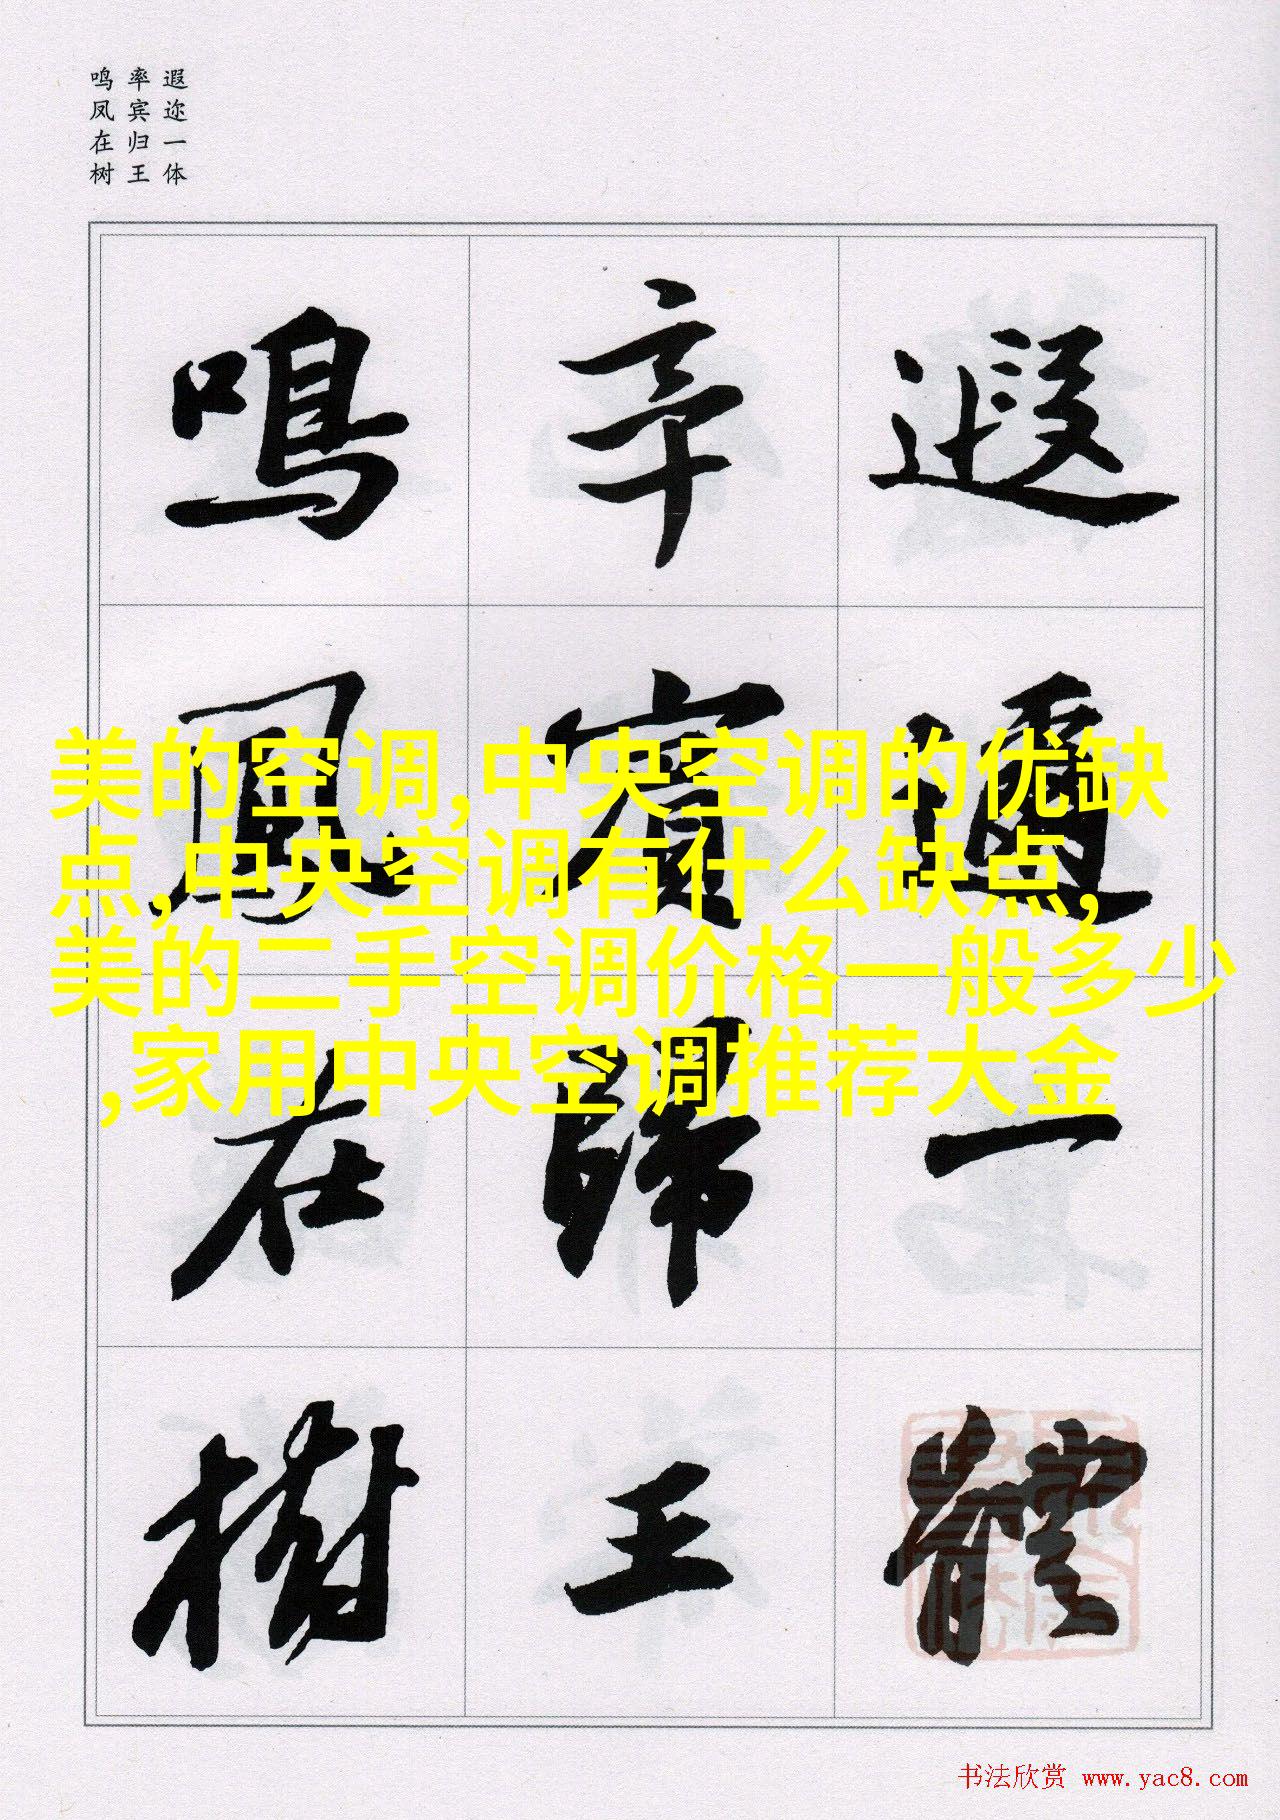 遐迩一体
率宾归王
鸣凤在树
遐邇一體
率賓歸王
鳴鳳在樹
美的空调,中央空调的优缺
点,中央空调有什么缺点,
美的二手空调价格一般多少
,家用中央空调推荐大金
书法欣赏 www.yac8.com